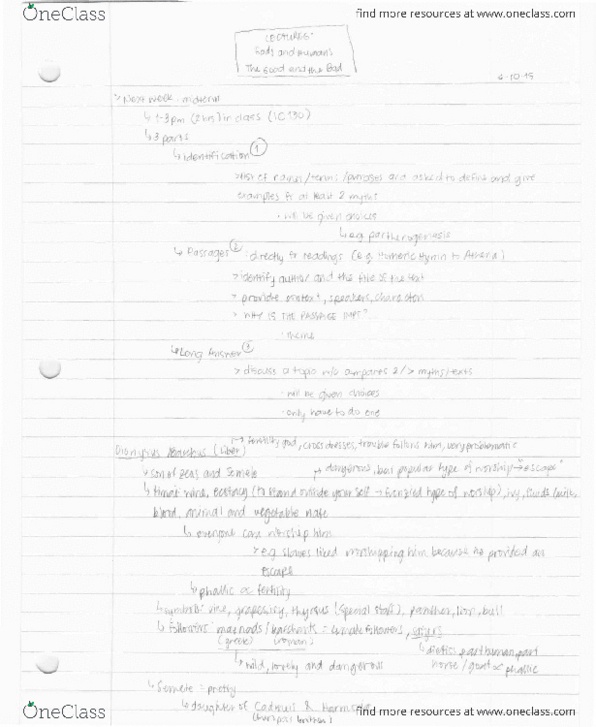 OneClass
find more resources at www.oneclass.com
LECTURE 5:
Gods and Humans
The Good and the Bad
6-10-15
Next week: midterm
↳ 1-3pm (2hrs) in class (IC130)
↳ 3 parts
↳ identification ①
list of names/terms/phrases and asked to define and give
examples fr at least 2 myths
· will be given choices
↳ e.g. parthenogenesis
↳ Passages ② : directly fr readings (e.g. Homeric Hymn to Athena)
> identify author and the title of the text
> provide context, speakers, characters
> WHY IS THE PASSAGE IMPT?
· theme
↳ Long Answer ③
> discuss a topic compares 2/> myths/texts
· will be given choices
· only have to do one
Dionysus Bacchus (Liber)
→ fertility god, cross dresses, trouble follows him, very problematic
↳ son of Zeus and Semele
dangerous, but popular type of worship → "escape"
↳ wine, ecstasy (to stand outside your self → frenzied type of worship), ivy, fluids (wine,
blood, animal and vegetable life
↳ everyone can worship him
> e.g. slaves liked worshipping him because he provided an
escape
↳ phallic ∝ fertility
↳ symbols: vine, grapes, ivy, thyrsus (special staff), panther, lion, bull
↳ followers: maenads/bacchants = female followers, satyrs
(greek) (roman)
↳ wild, lovely and dangerous
↳ part human, part
horse/goat ∝ phallic
↳ Semele = pretty
↳ daughter of Cadmus & Harmonia
OneClass
find more resources at www.oneclass.com